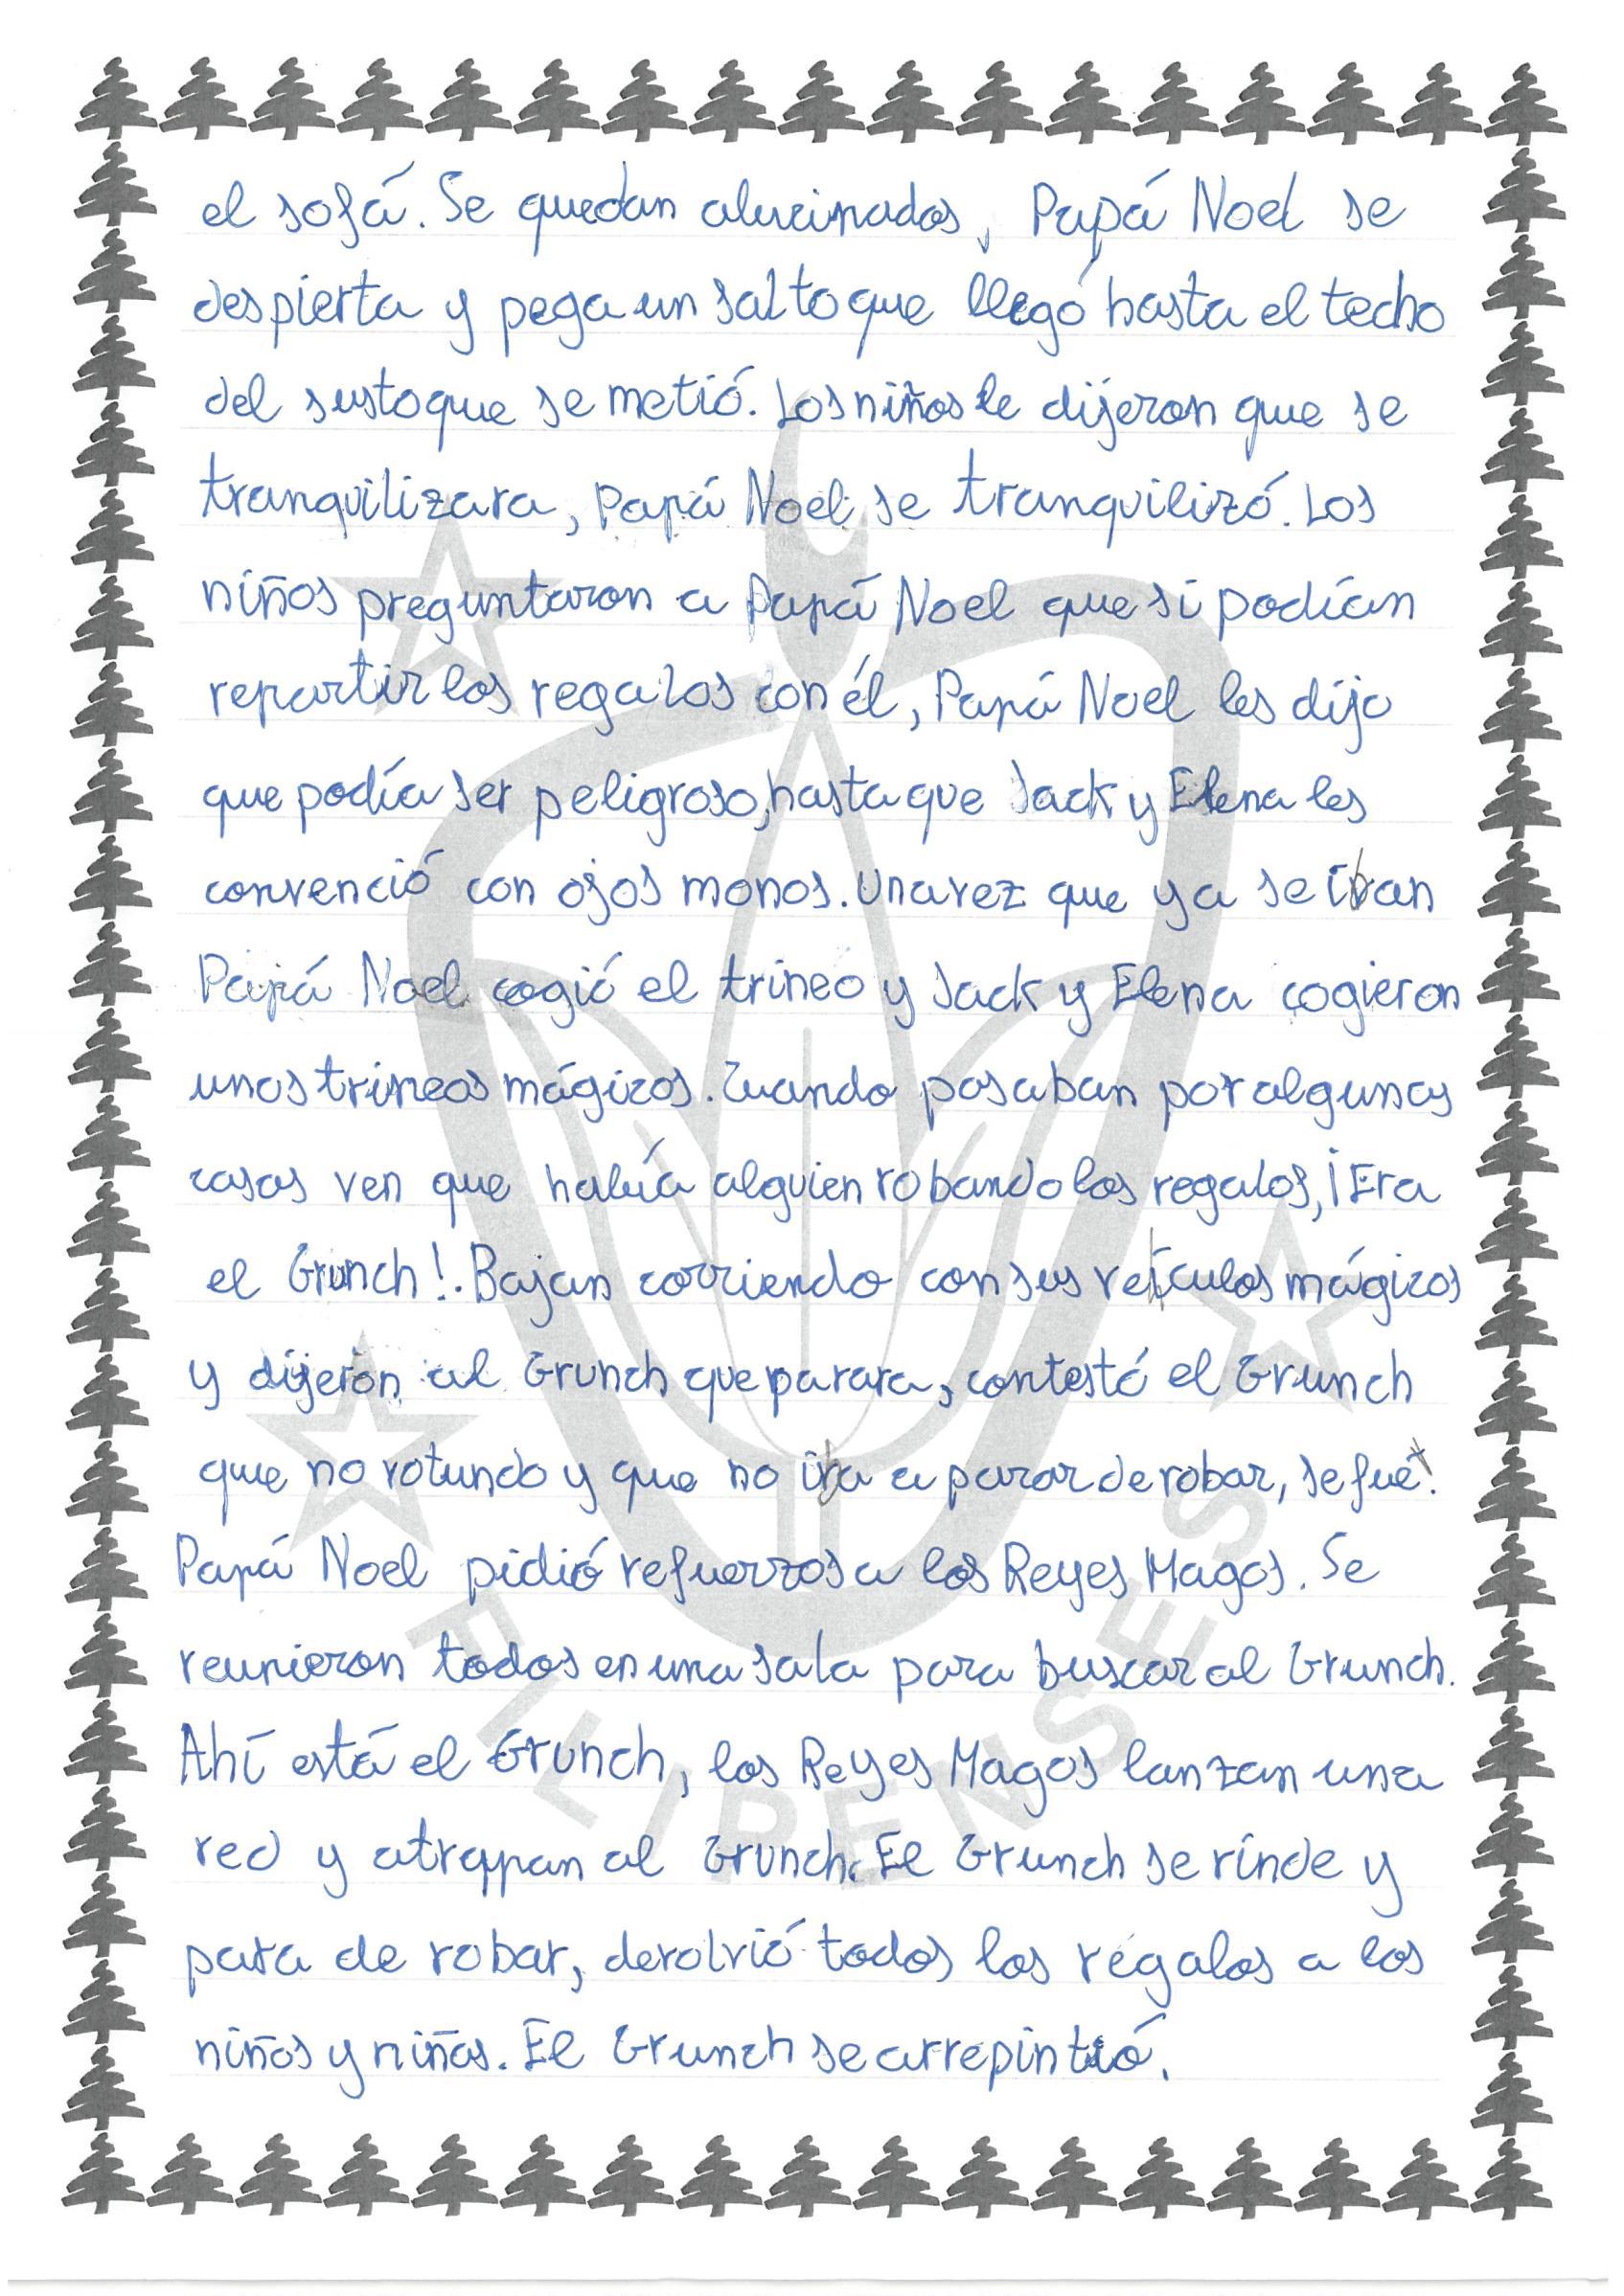 el sofá. Se quedan alucinados, Papá Noel se
despierta y pega un salto que llegó hasta el techo
del susto que se metió. Los niños le dijeron que se
tranquilizara, Papá Noel se tranquilizó. Los
niños preguntaron a Papá Noel que si podían
repartir los regalos con él, Papá Noel les dijo
que podía ser peligroso, hasta que Jack y Elena les
convenció con ojos monos. Una vez que ya se iban
Papá Noel cogió el trineo y Jack y Elena cogieron
unos trineos mágicos. Cuando pasaban por algunas
casas ven que había alguien robando los regalos, ¡Era
el Grunch!. Bajan corriendo con sus vehículos mágicos
y dijeron al Grunch que parara, contestó el Grunch
que no rotundo y que no iba a parar de robar, se fue.
Papá Noel pidió refuerzos a los Reyes Magos. Se
reunieron todos en una sala para buscar al Grunch.
Ahí está el Grunch, los Reyes Magos lanzan una
red y atrapan al Grunch. El Grunch se rinde y
para de robar, devolvió todos los regalos a los
niños y niñas. El Grunch se arrepintió.
FILIPENSES